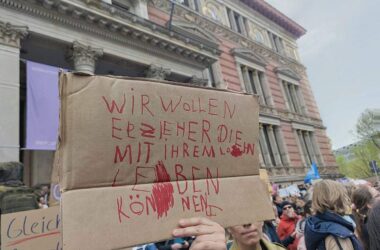 WIR WOLLEN
ERZIEHER DIE
MIT IHREM LOHN
LEBEN
KÖNNEN!
Gleich